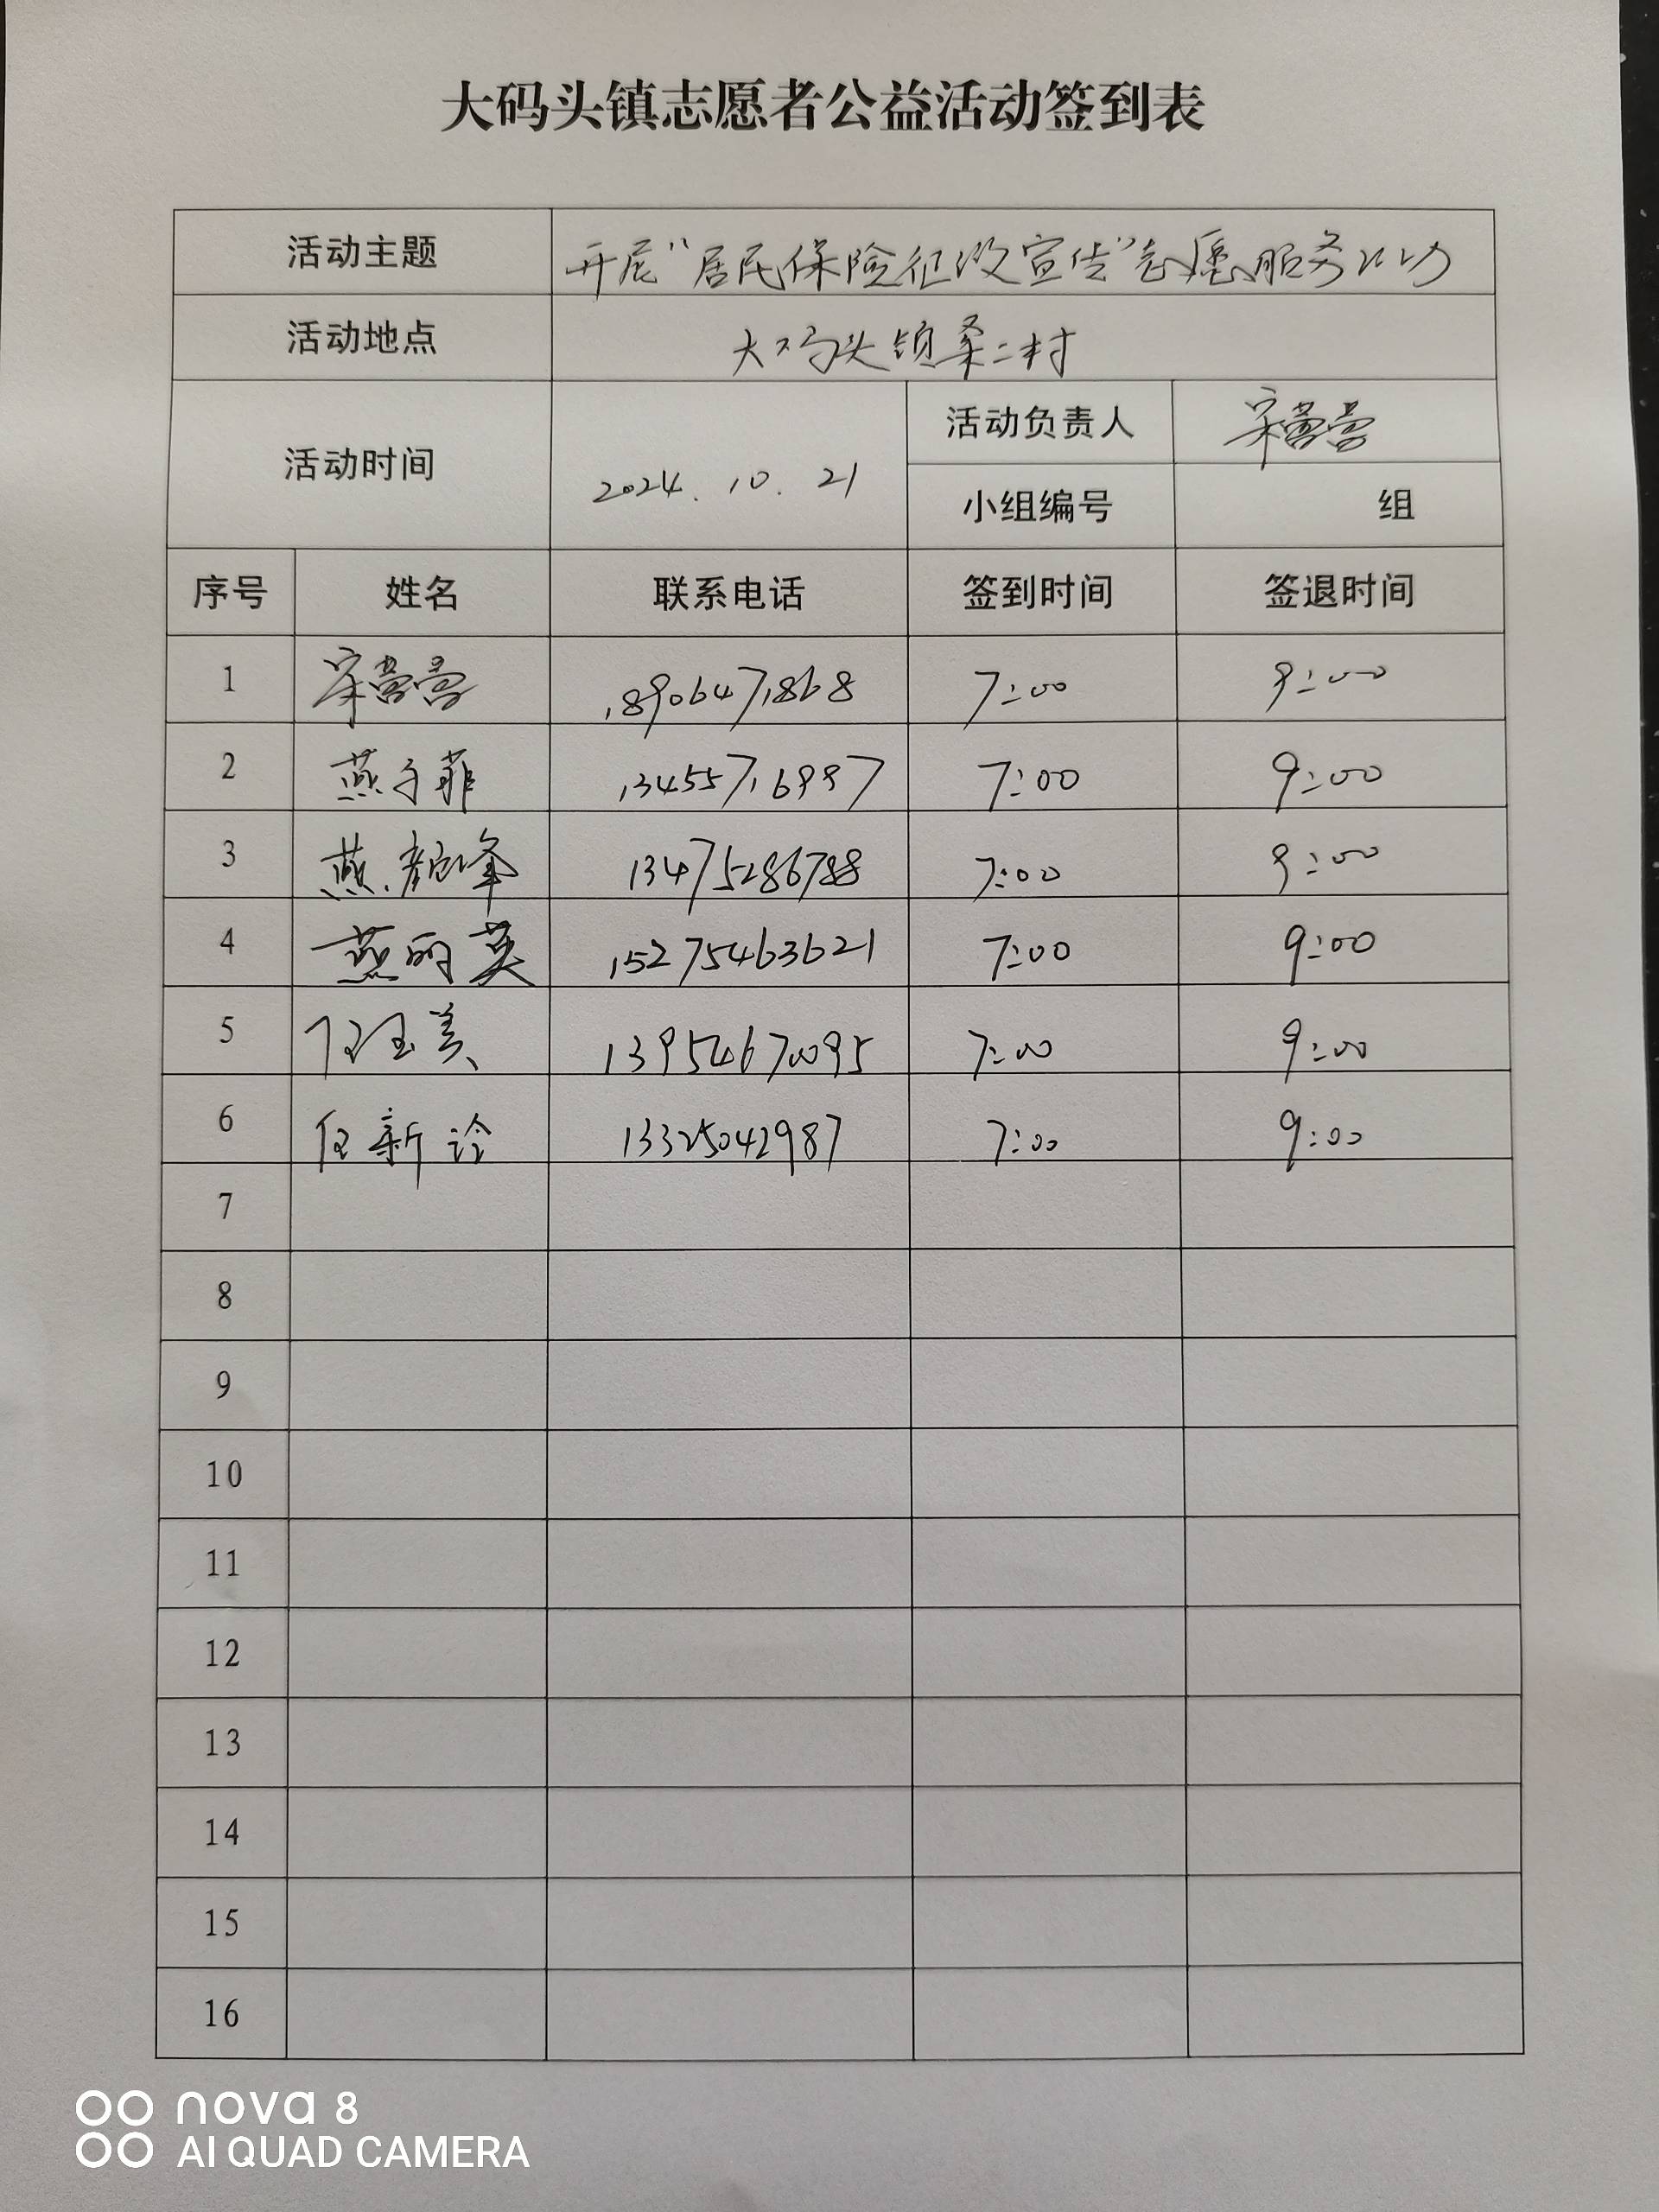 大码头镇志愿者公益活动签到表
活动主题 开展"居民保险征收宣传"志愿服务活动
活动地点 大码头镇桑二村
活动时间 2024.10.21 活动负责人 宋莹莹
小组编号 组
序号 姓名 联系电话 签到时间 签退时间
1 宋莹莹 18906471868 7:00 9:00
2 燕子菲 13455716997 7:00 9:00
3 燕颜峰 13475286788 7:00 9:00
4 燕丽英 15275463621 7:00 9:00
5 任玉美 13954670095 7:00 9:00
6 任新 13325042987 7:00 9:00
7
8
9
10
11
12
13
14
15
16
nova 8
AI QUAD CAMERA